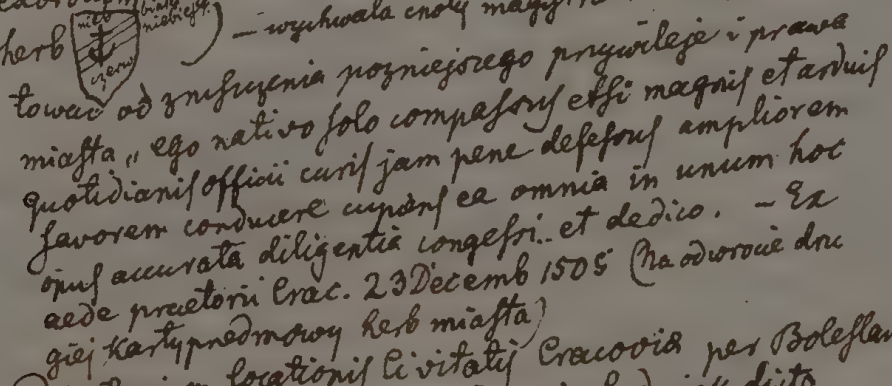 herb nieb czerw niebiesk. ) — wychwala cnoty
tować od zniszczenia pozniejszego przywileje i prawa
miasta „ ego nativo solo compassus etsi magnis et arduis
quotidianis officii curis jam pene defessus ampliorem
favorem conducere cupiens ea omnia in unum hoc
opus accurata diligentia congessi.. et dedico. — Ex
aede praetorii Crac. 23 Decemb 1505 (na odwrocie dru
giej karty predmowy herb miasta)
locationis Civitatis Cracovia per Boleslau